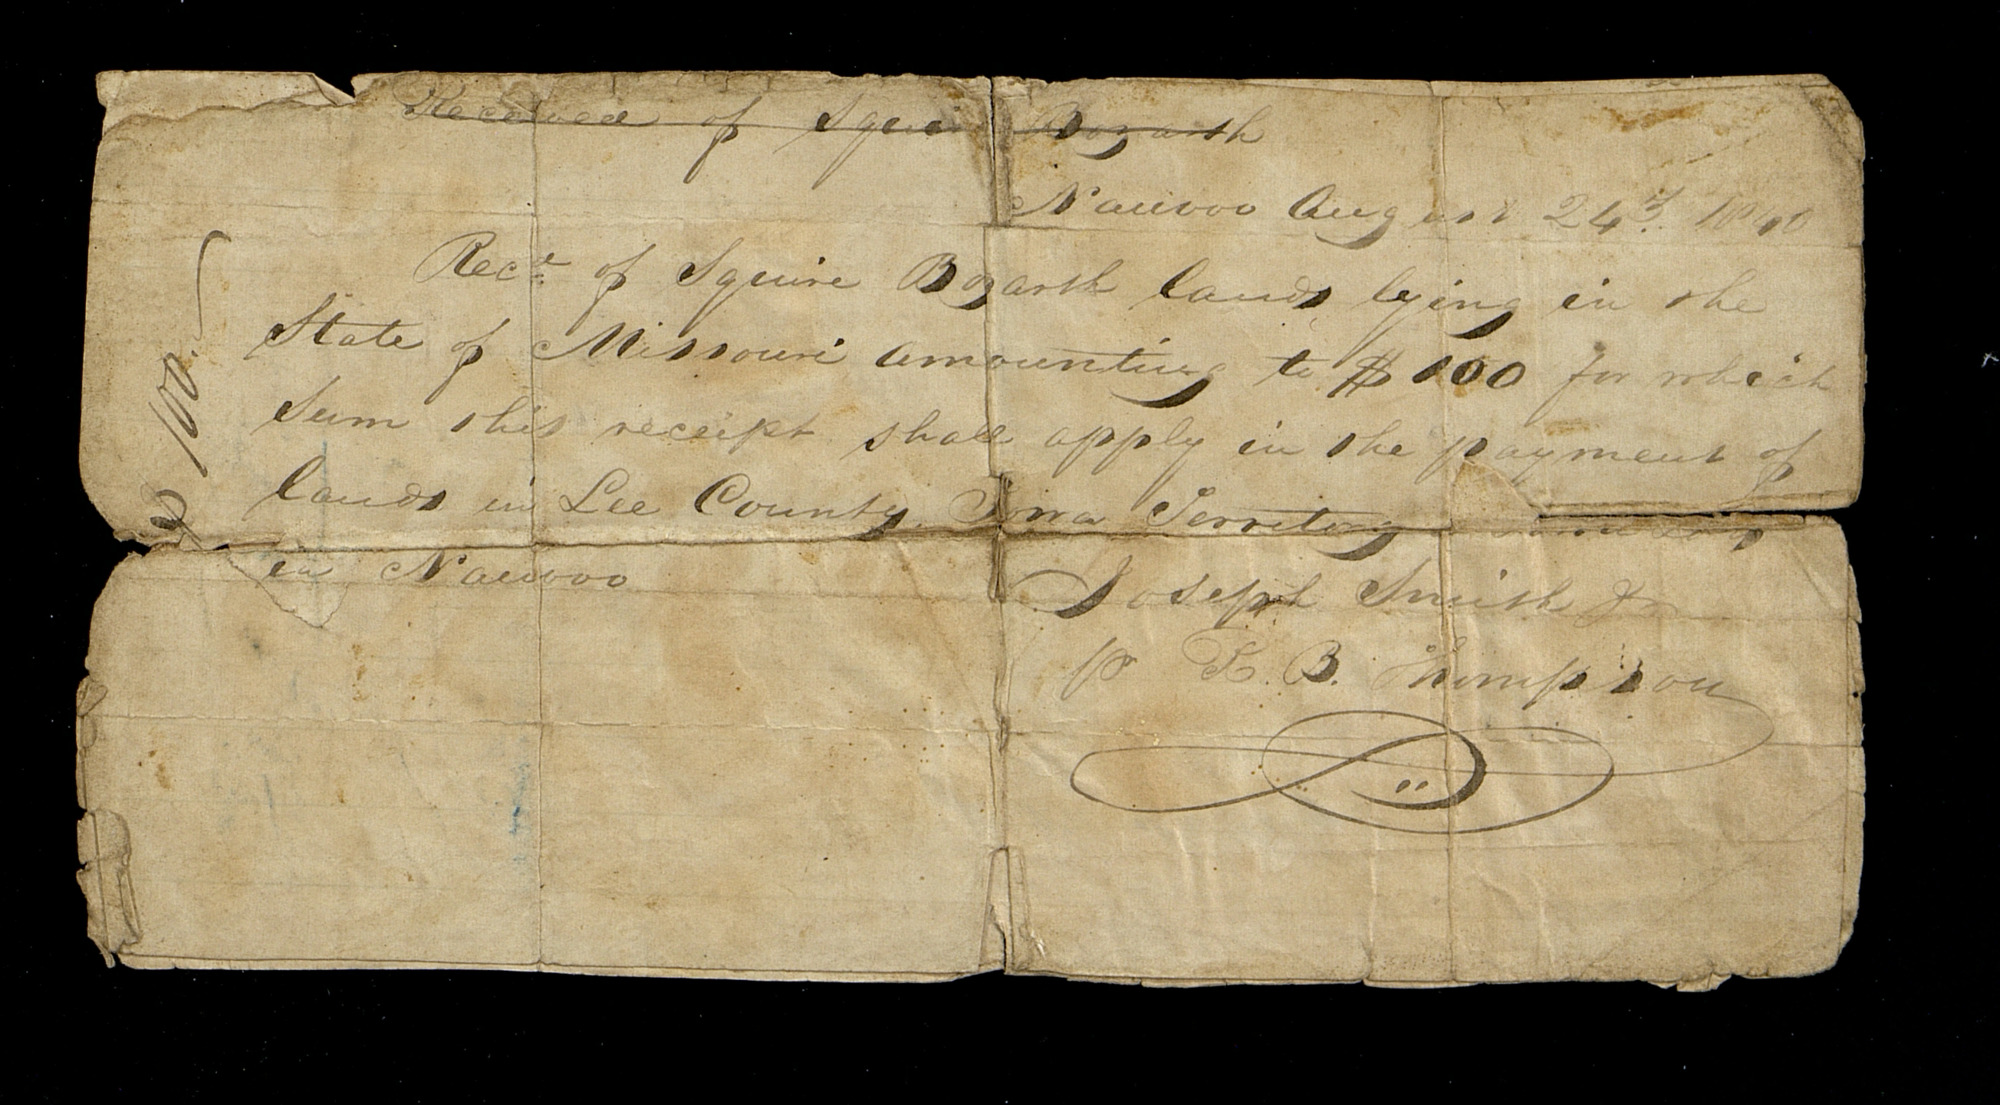 Received of Squire Bozarth
Nauvoo August 24th. 1840
Recd. of Squire Bozarth lands lying in the
State of Missouri amounting to $100 for which
Sum this receipt shall apply in the payment of
lands in Lee County. Iowa Territory
in Nauvoo
Joseph Smith Jr
pr R. B. Thompson
$ 100.—